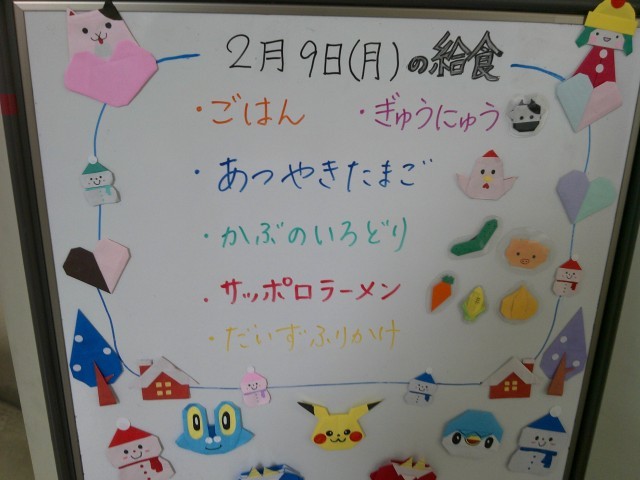 2月9日(月)の給食
・ごはん ・ぎゅうにゅう
・あつやきたまご
・かぶのいろどり
・サッポロラーメン
・だいずふりかけ